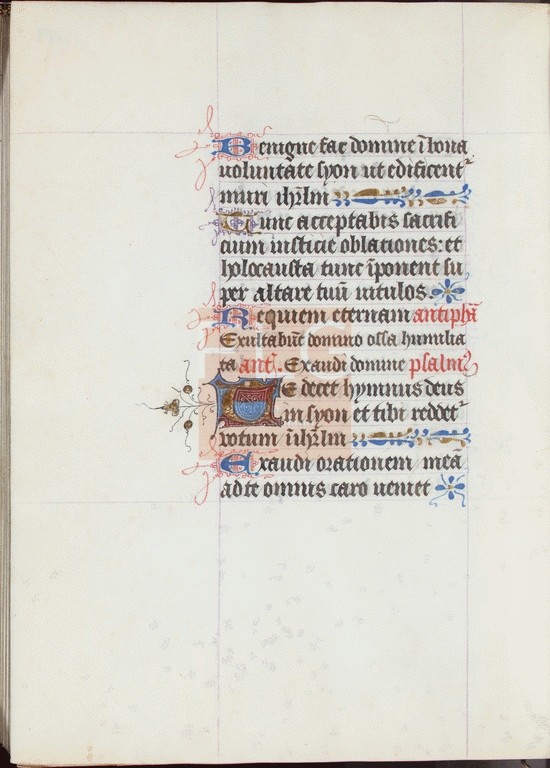 Benigne fac domine ī bona
uoluntate syon ut edificent᷑
muri ihr̄lm
Tunc acceptabis sacrifi
cium iusticie oblationes: et
holocausta tunc īponent su
per altare tuū uitulos.
Requiem eternam antiphā
Exultabūt domino ossa humilia
ta ant̄. Exaudi domine psalm᷒
Te decet hymnus deus
in syon et tibi reddet᷑
votum ī ihr̄lm
Exaudi orationem meā
ad te omnis caro ueniet